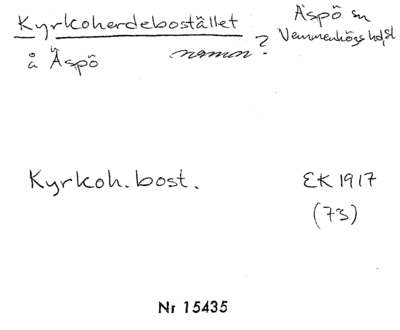 Kyrkoherdebostället
å Äspö
namnen ?
Äspö sn
Vemmenhögs hd, sl
Kyrkoh. bost.
EK 1917
(73)
Nr 15435